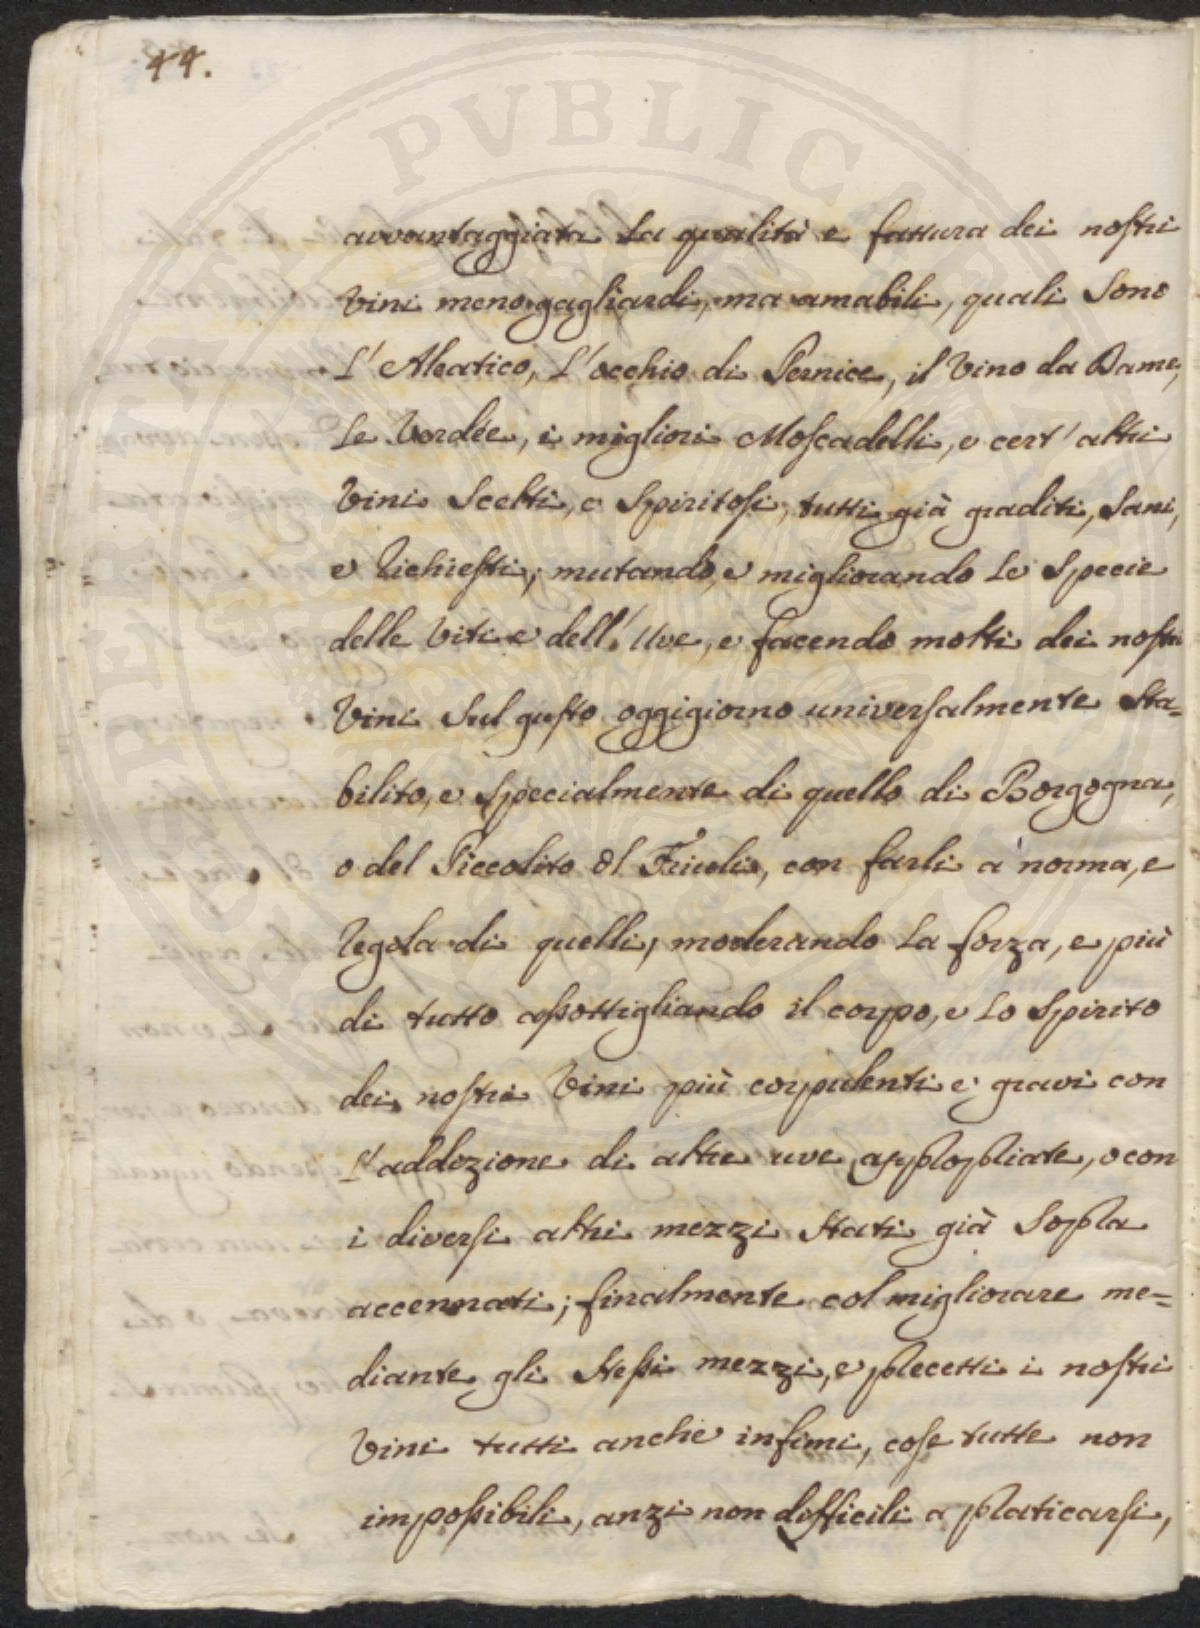 44.
avvantaggiata La qualità e fattura dei nostri
Vini meno gagliardi, ma amabili, quali Sono
L' Aleatico, L'occhio di Pernice, il Vino da Dame,
Le Verdée, i migliori Moscadelli, e cert' altri
Vini Scelti, e Spiritosi, tutti già graditi, Sani,
e Richiesti; mutando, e migliorando Le Specie
delle Viti e dell' Uve, e facendo molti dei nostri
Vini Sul gusto oggigiorno universalmente Sta=
bilito, e Specialmente di quello di Borgogna,
o del Piccolito del Friuli, con farli a norma, e
Regola di quelli, moderando La forza, e più
di tutto assottigliando il corpo, e Lo Spirito
dei nostri Vini più corpulenti e gravi con
L'addizione di altre uve appropriate, o con
i diversi altri mezzi Stati già Sopra
accennati; finalmente col migliorare me=
diante gli Stessi mezzi, e precetti i nostri
Vini tutti anche infimi, cose tutte non
impossibili, anzi non difficili a praticarsi,
PUBLICAE